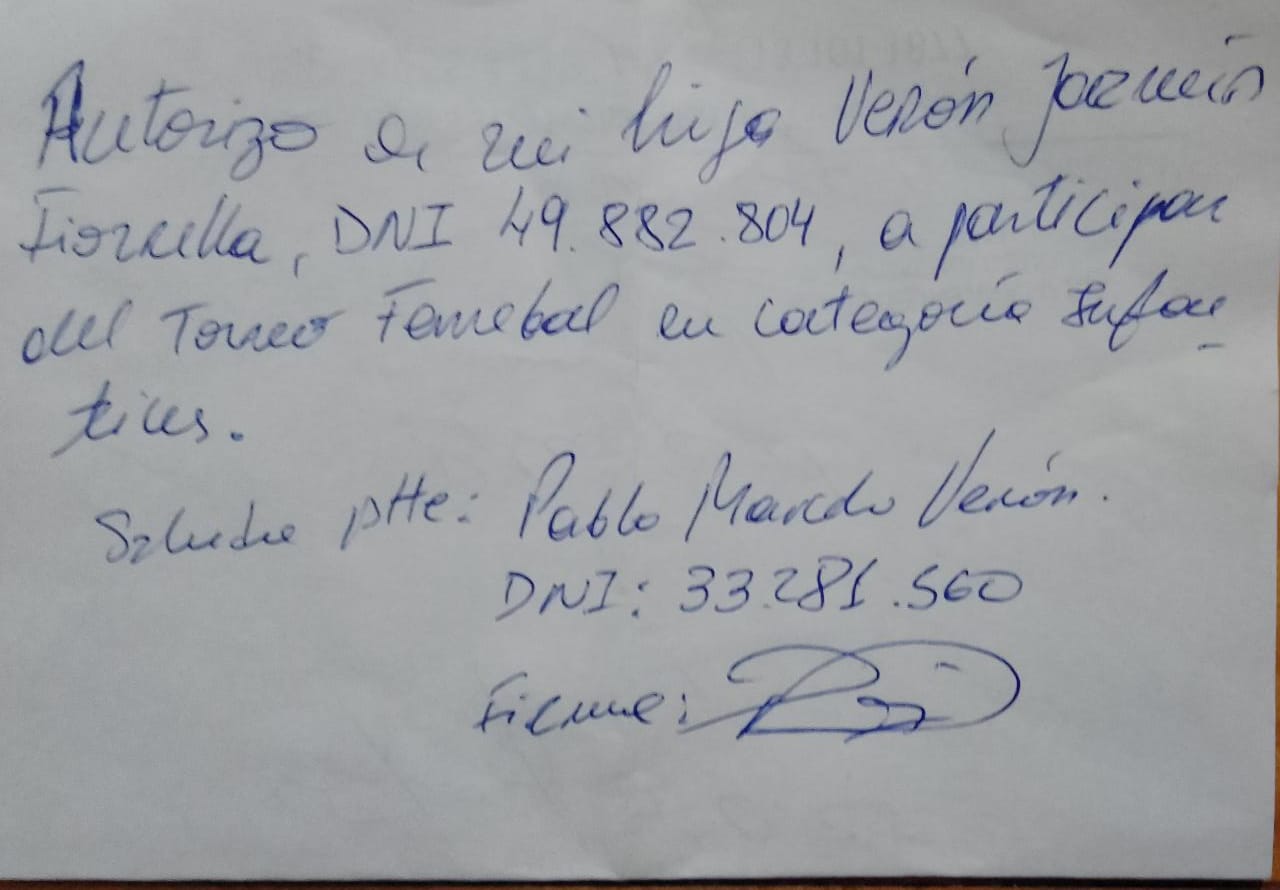 Autorizo a mi hija Verón Jazmín
Fiorella, DNI 49.882.804, a participar
del Torneo Femebal en categoría Infan
tiles.
Saluda Atte: Pablo Marcelo Verón.
DNI: 33.281.560
Firma: